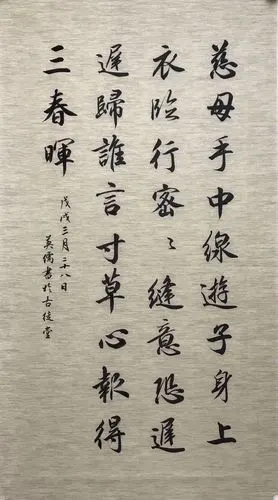 慈母手中線遊子身上
衣臨行密〻縫意恐遲
遲歸誰言寸草心報得
三春暉
戊戌三月二十八日
儒書於古堂